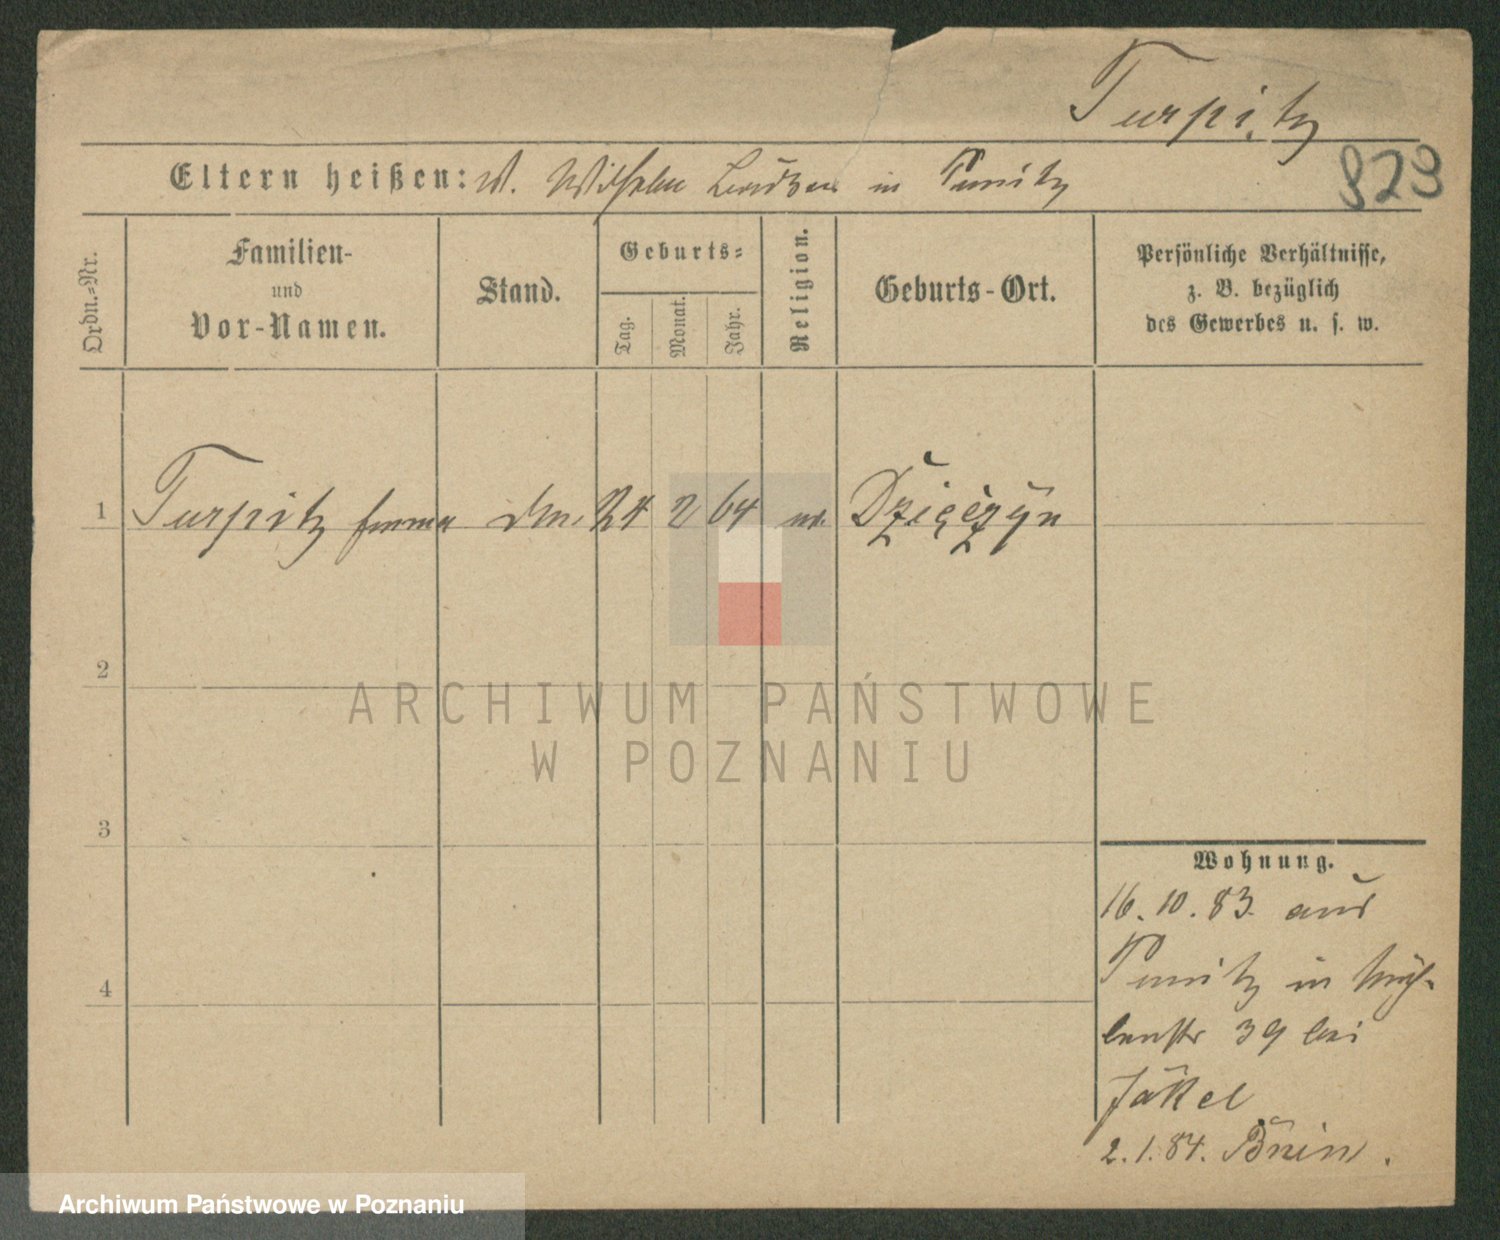 Turpitz
Eltern heißen: W. Wilhelm in Punitz
823
Ordn.-Nr.
Familien-
und
Vor-Namen.
Stand.
Geburts-
Tag.
Monat.
Jahr.
Religion.
Geburts-Ort.
Persönliche Verhältnisse,
z. B. bezüglich
des Gewerbes u. s. w.
1 Turpitz Emma 24 2 64 Dzięczyn
2
3
4
Wohnung.
16.10.83. aus
Punitz in Müh-
lenstr 39 bei
Jäkel
2.1.84. Bnin.
ARCHIWUM PAŃSTWOWE
W POZNANIU
Archiwum Państwowe w Poznaniu